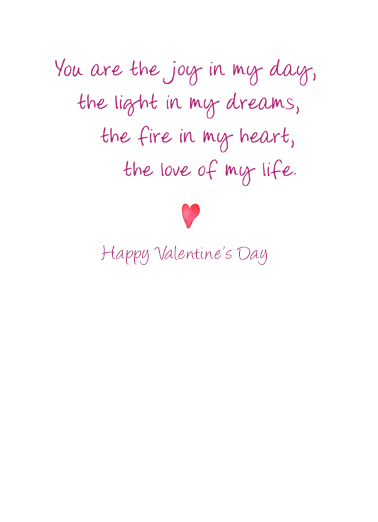 You are the joy in my day,
the light in my dreams,
the fire in my heart,
the love of my life.
Happy Valentine's Day